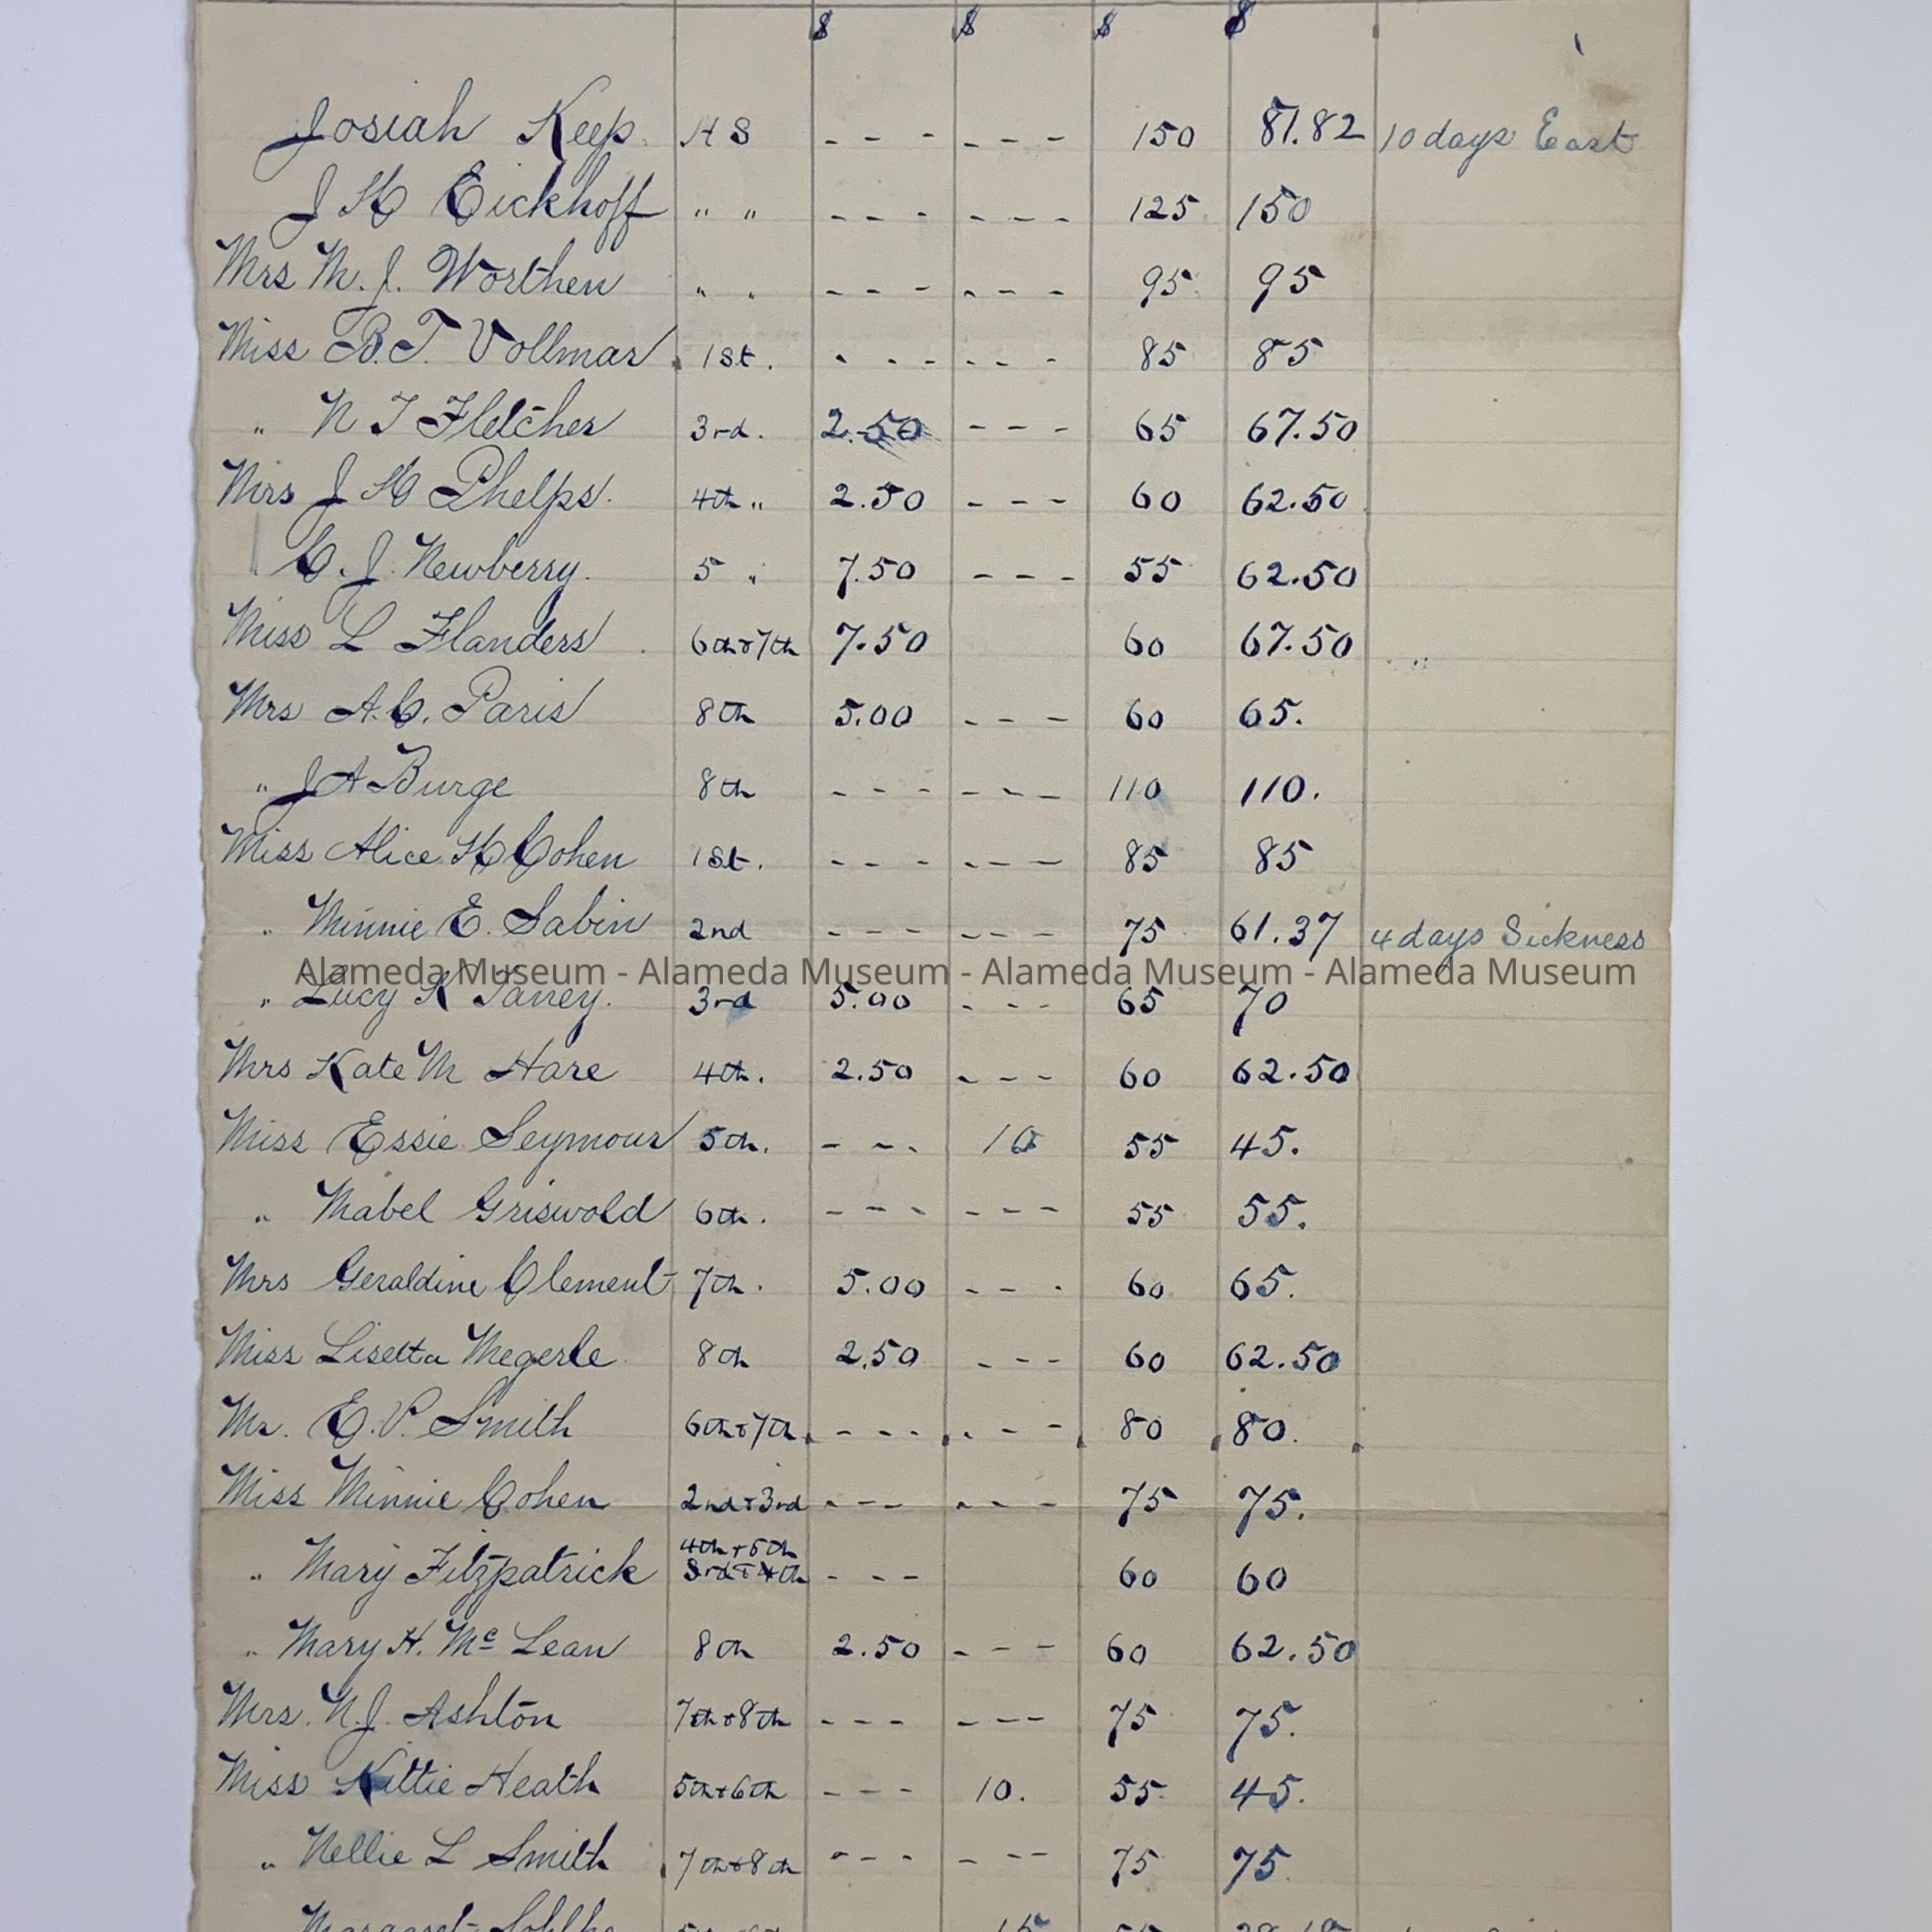 $ $ $ $
Josiah Keep HS - - - - - - 150 81.82 10 days East
J H Eickhoff " " - - - - - - 125 150
Mrs M. J. Worthen " " - - - - - - 95 95
Miss B. T. Vollmar 1st. - - - - - - 85 85
" N T Fletcher 3rd. 2.50 - - - 65 67.50
Mrs J H Phelps. 4th " 2.50 - - - 60 62.50
" C. J. Newberry. 5 " 7.50 - - - 55 62.50
Miss L Flanders 6th & 7th 7.50 60 67.50
Mrs A. C. Paris 8th 5.00 - - - 60 65.
" J A Burge 8th - - - - - - 110 110.
Miss Alice H Cohen 1st. - - - - - - 85 85
" Minnie E. Sabin 2nd - - - - - - 75 61.37 4 days Sickness
Alameda Museum - Alameda Museum - Alameda Museum - Alameda Museum
" Lucy K 3rd 5.00 - - - 65 70
Mrs Kate M Hare 4th. 2.50 - - - 60 62.50
Miss Essie Seymour 5th. - - - 10 55 45.
" Mabel Griswold 6th. - - - - - - 55 55.
Mrs Geraldine Clement 7th. 5.00 - - - 60 65.
Miss Lisetta Megerle 8th 2.50 - - - 60 62.50
Mr. E. P. Smith 6th & 7th - - - - - - 80 80.
Miss Minnie Cohen 2nd & 3rd - - - - - - 75 75.
4th + 5th
" Mary Fitzpatrick 3rd + 4th - - - 60 60
" Mary H. Mc Lean 8th 2.50 - - - 60 62.50
Mrs. N. J. Ashton 7th & 8th - - - - - - 75 75.
Miss Kittie Heath 5th + 6th - - - 10. 55 45.
" Nellie L Smith 7th & 8th - - - - - - 75 75.
Margaret 15 55